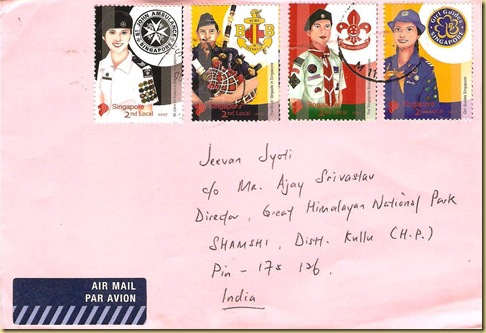 ST. JOHN AMBULANCE
SINGAPORE
Singapore
2nd Local
2007
B B
Singapore
2nd Local
2007
Singapore
2nd Local
2007
Girl Guides
SINGAPORE
Singapore
2nd Local
2007
Jeevan Jyoti
c/o Mr. Ajay Srivastav
Director, Great Himalayan National Park
SHAMSHI, Distt. Kullu (H.P.)
Pin - 175 126.
India
AIR MAIL
PAR AVION